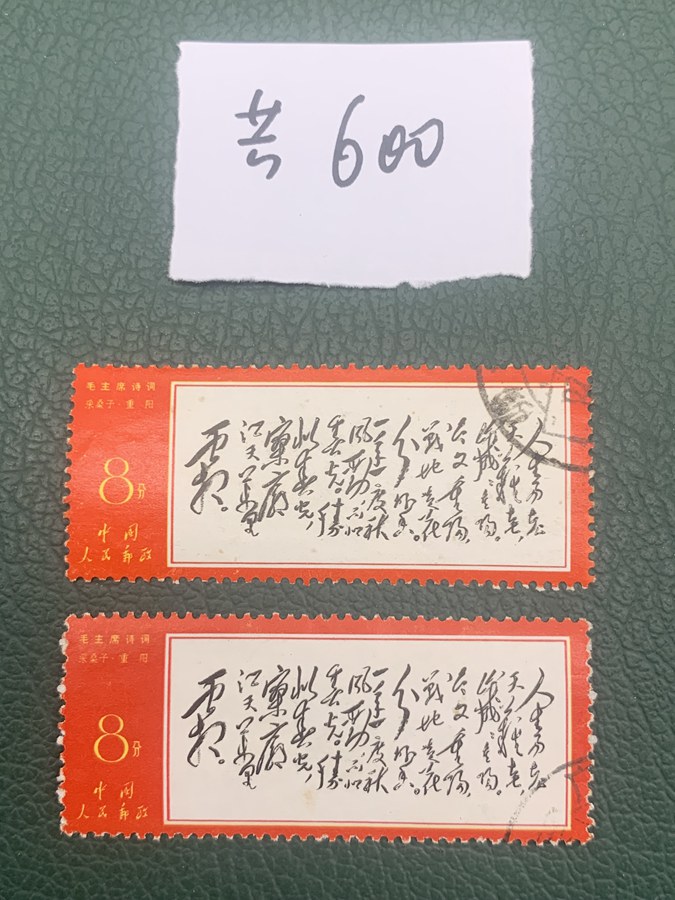 共600
毛主席诗词
采桑子·重阳
8分
中国
人民邮政
人生易老
天難老，
歲歲重陽。
今又重陽，
戰地黄花
分外香。
一年一度秋
風勁，不似
春光。勝
似春光，
寥廓
江天萬里
霜。
毛主席诗词
采桑子·重阳
8分
中国
人民邮政
人生易老
天難老，
歲歲重陽。
今又重陽，
戰地黄花
分外香。
一年一度秋
風勁，不似
春光。勝
似春光，
寥廓
江天萬里
霜。